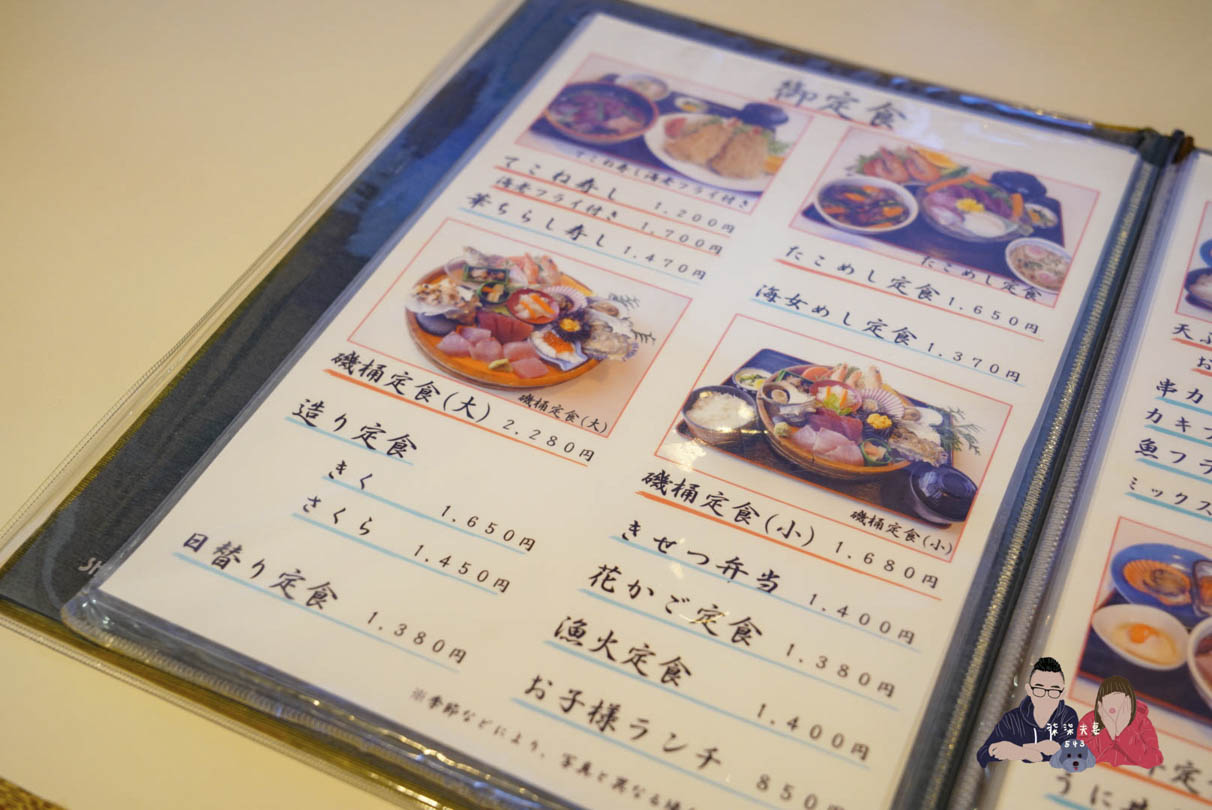 御定食
てこね寿し海老フライ付き
てこね寿し 1.200円
海老フライ付き 1.700円
華ちらし寿し 1.470円
磯桶定食(大)
磯桶定食(大) 2.280円
造り定食
きく 1.650円
さくら 1.450円
日替り定食 1.380円
たこめし定食
たこめし定食 1.650円
海女めし定食 1.370円
磯桶定食(小)
磯桶定食(小) 1.680円
きせつ弁当 1.400円
花かご定食 1.380円
漁火定食 1.400円
お子様ランチ 850
※季節などにより、写真と異なる
天ぷ
お
串カ
カキフ
魚フラ
ミックス
定
うに
滾滾夫妻
543